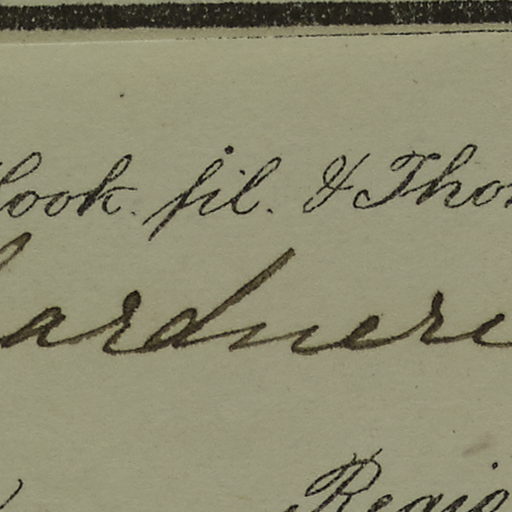 Hook. fil. & Tho
ardnere
Regio